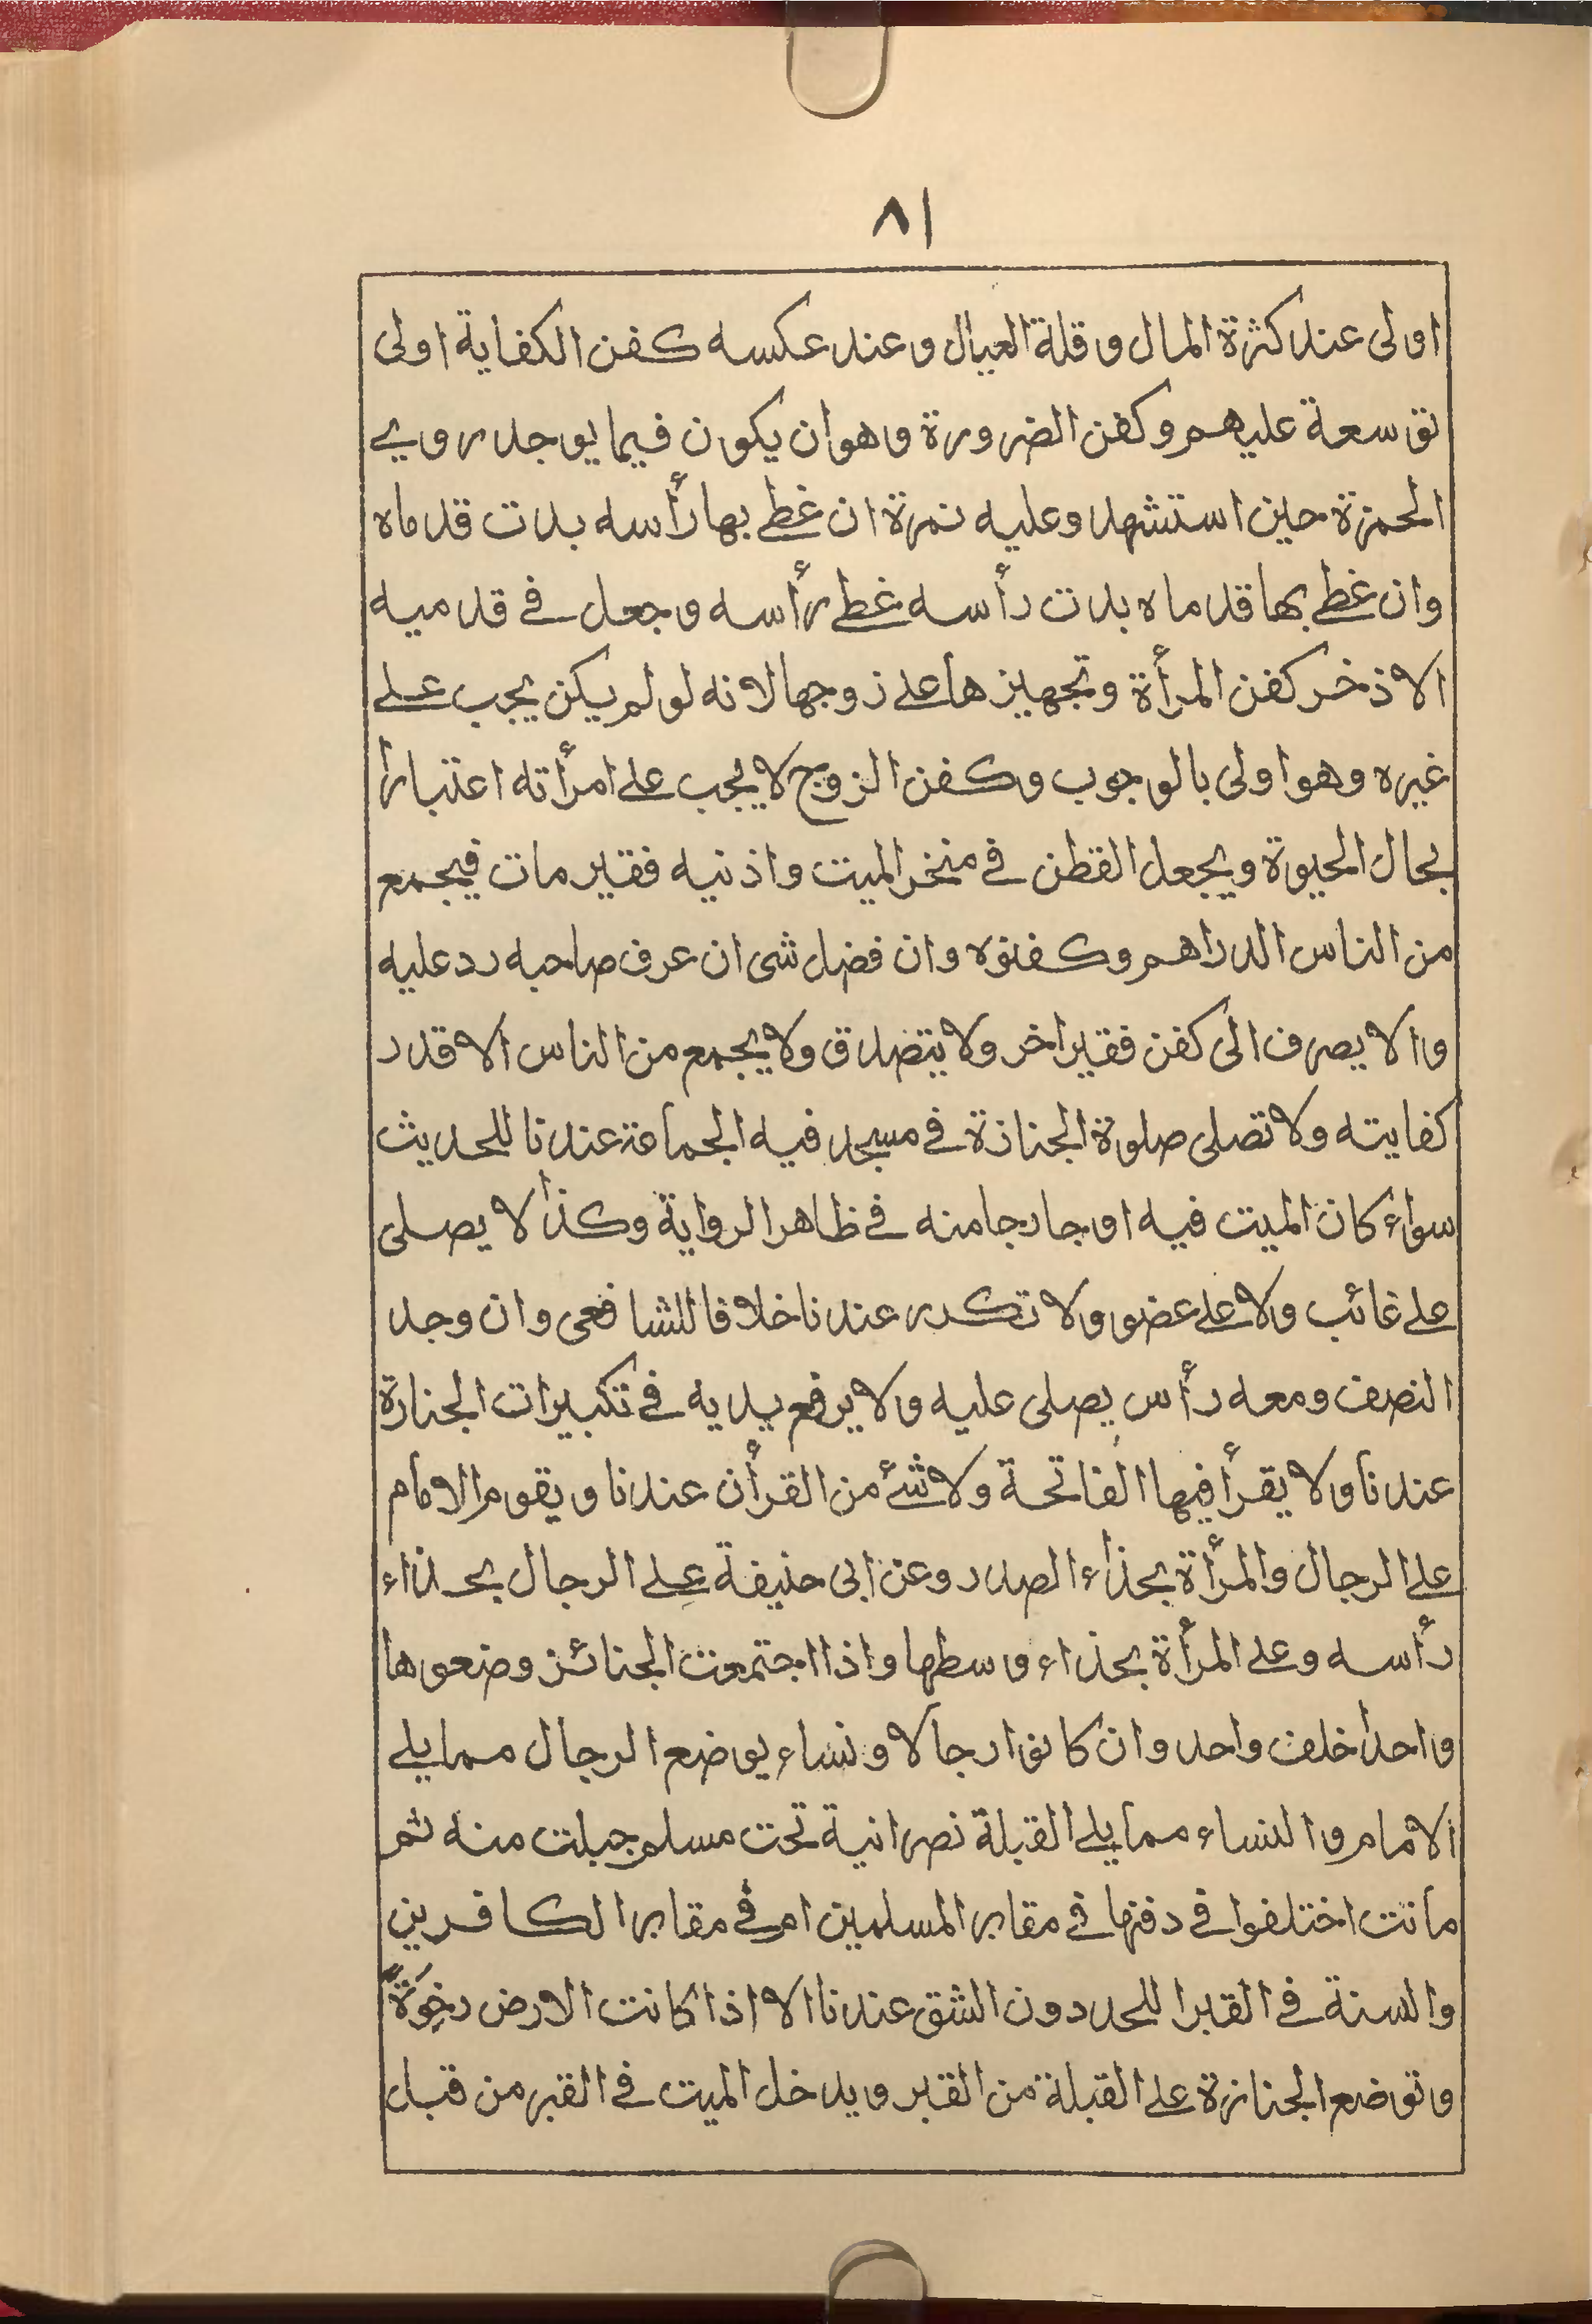 ٨١
اولى عند كثرة المال وقلة العيال وعند عكسه كفن الكفاية اولى
توسعة عليهم وكفن الضرورة وهو ان يكون فيما يوجد روى
الحمزة حين استشهد وعليه نمرة ان غطى بها رأسه بدت قدماه
وان غطى بها قدماه بدت رأسه غطى رأسه وجعل فى قدميه
الاذخر كفن المرأة وتجهيزها على زوجها لانه لو لم يكن يجب على
غيره وهو اولى بالوجوب وكفن الزوج لا يجب على امرأته اعتبارا
بحال الحيوة ويجعل القطن فى منخر الميت واذنيه فقير مات فيجمع
من الناس الدراهم وكفنوه وان فضل شى ان عرف صاحبه رد عليه
والا يصرف الى كفن فقير اخر ولا يتضدق ولا يجمع من الناس الا قدر
كفايته ولا تصلى صلوة الجنازة فى مسجد فيه الجماعة عندنا للحديث
سواء كان الميت فيه او جارجا منه فى ظاهر الرواية وكذا لا يصلى
على غائب ولا على عضو ولا تكرر عندنا خلافا للشافعى وان وجد
النصف ومعه رأس يصلى عليه ولا يرفع يديه فى تكبيرات الجنارة
عندنا ولا يقرأ فيها الفاتحة ولا شئ من القرأن عندنا ويقوم الامام
على الرجال والمرأة بحذاء الصدر وعن ابى حنيفة على الرجال بحذاء
رأسه وعلى المرأة بحذاء وسطها واذا اجتمعت الجنائز وضعوها
واحدا خلف واحد وان كانوا رجالا ونساء يوضع الرجال مما يلى
الامام والنساء مما يلى القبلة نصرانية تحت مسلم جبلت منه ثم
ماتت اختلفوا فى دفنها فى مقابر المسلمين ام فى مقابر الكافرين
والسنة فى القبر اللحد دون الشق عندنا الا اذا كانت الارض رخوة
وتوضع الجنازة على القبلة من القبر ويدخل الميت فى القبر من قبل